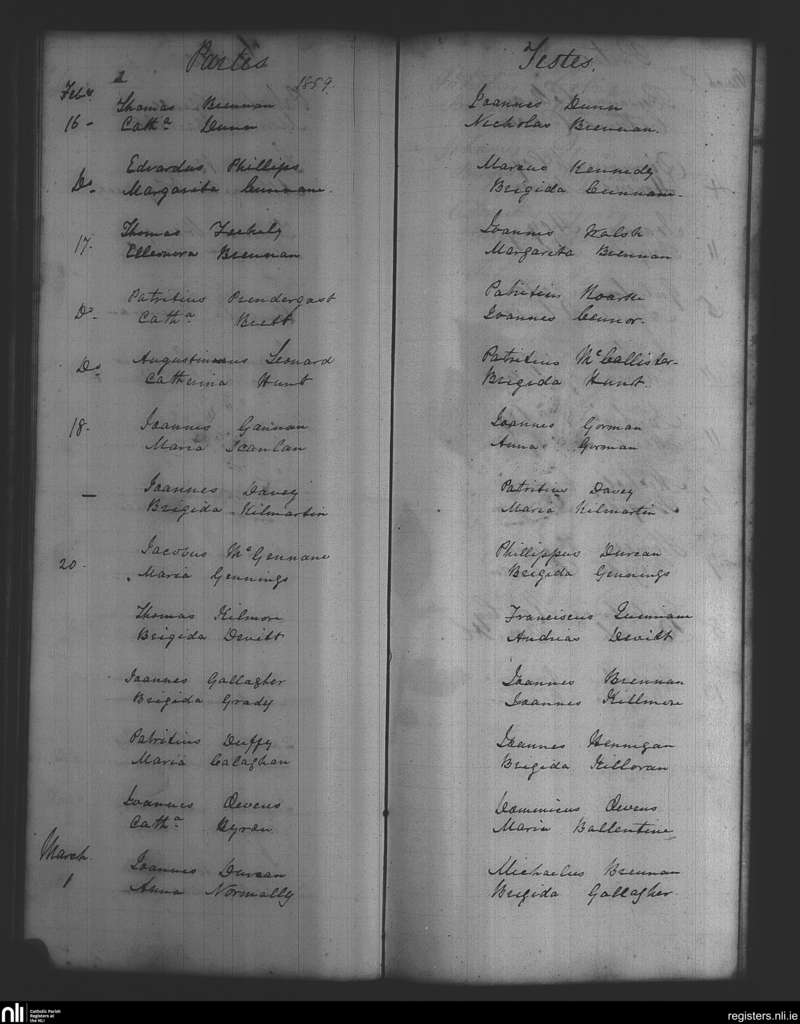 Partis
Testes.
1859.
Feby
Thomas Brennan
Joannes Dunn
16 - Cath.a Dunn
Nicholas Brennan.
Edvardus Phillips
Marcus Kennedy
Do. Margarita Cunnane.
Brigida Cunnane.
Thomas
Joannes Walsh
17. Elleonora Brennan
Margarita Brennan
Patritius Prendergast
Patritius Roarke
Do. Cath.a Brett
Joannes Connor.
Augustinus Leonard
Patritius McCallister
Do Catherina Hunt
Brigida Hunt.
18. Joannes Gannan
Joannes Gorman
Maria Scanlan
Anna Gorman
Joannes Davey
Patritius Davey
— Brigida Kilmartin
Maria Kilmartin
Jacobus McGennane
Phillippus Durcan
20. Maria Gennings
Brigida Gennings
Thomas Kilmore
Franciscus
Brigida Devitt
Andrias Devitt
Joannes Gallagher
Joannes Brennan
Brigida Grady
Joannes Killmore
Patritius Duffy
Joannes Hennigan
Maria Calaghan
Brigida Killoran
Joannes Devens
Dominicus Devens
Cath.a Byrdn
Maria Ballentine
March.
Joannes Durcan
Michaelus Brennan
1 Anna Normally
Brigida Gallagher.
nli
Catholic Parish
Registers at
the NLI
registers.nli.ie